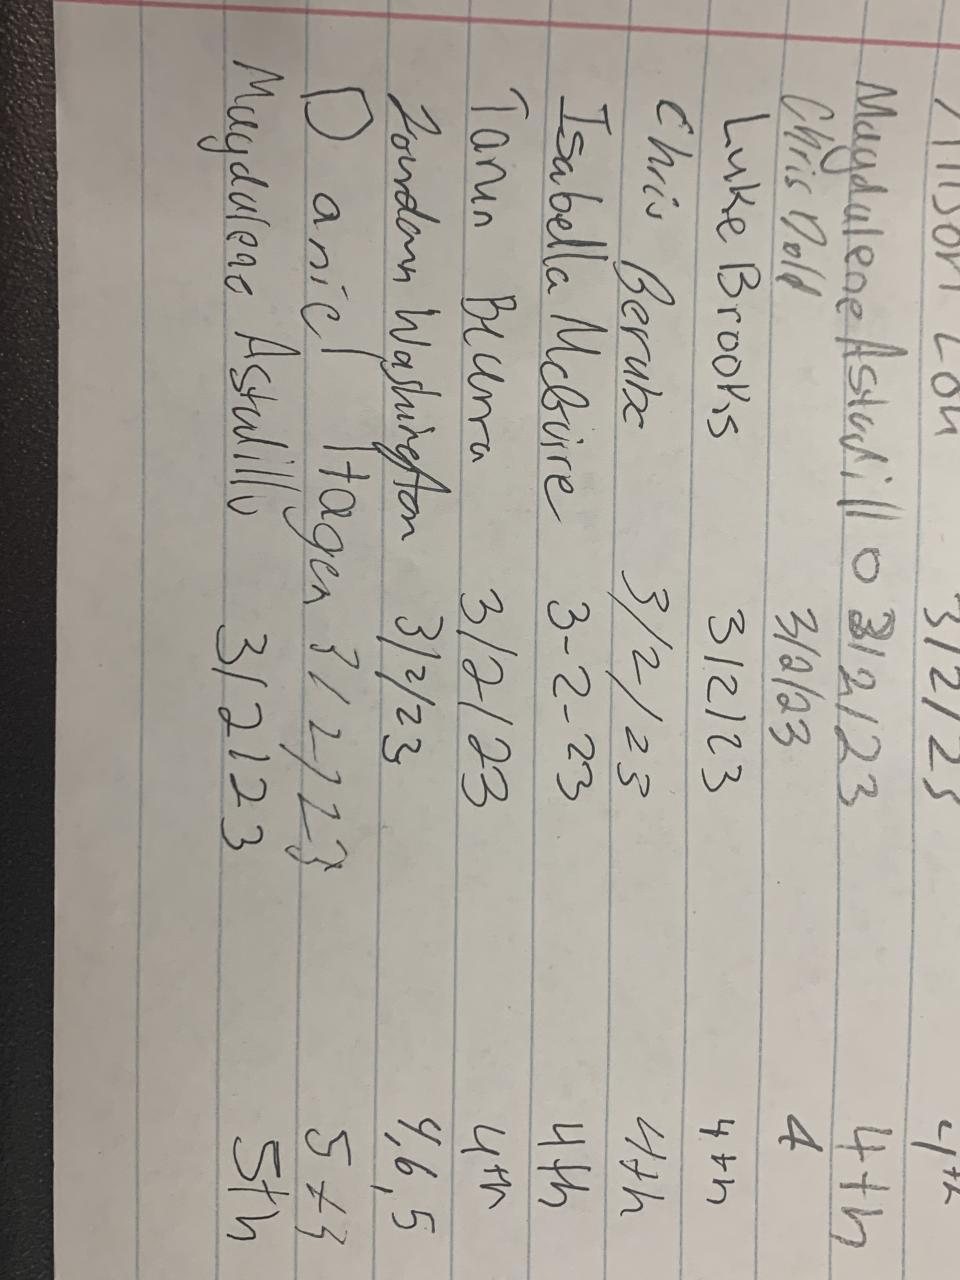 Allison Loh 3/2/23 4th
Magdalene Astudillo 3/2/23 4th
Chris Dold 3/2/23 4
Luke Brooks 3/2/23 4th
Chris Berube 3/2/23 4th
Isabella McGuire 3-2-23 4th
Tarun 3/2/23 4th
Jourdann Washington 3/2/23 4,6,5
Daniel Hagen 3/2/23
Magdalene Astudillo 3/2/23 5th